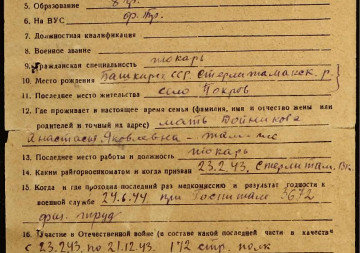 5. Образование 8 кл.
6. На ВУС
7. Должностная квалификация
8. Военное звание
9. Гражданская специальность токарь
10. Место рождения Башкирс. ССР. Стерлитамакск. р.
11. Последнее место жительства село Покров
12. Где проживает в настоящее время семья (фамилия, имя и отчество жены или
родителей и точный их адрес) мать Бойникова
Анастасия Яковлевна – там-же
13. Последнее место работы и должность токарь
14. Каким райгорвоенкоматом и когда призван 23.2.43. Стерлитам.
15. Когда и где проходил последний раз медкомиссию и результат годности к
военной службе 24.6.44 при Госпитале 3672
физ. труд
16. Участие в Отечественной войне (в составе какой последней части в качестве
с 23.2.43. по 21.12.43. 172 стр. полк